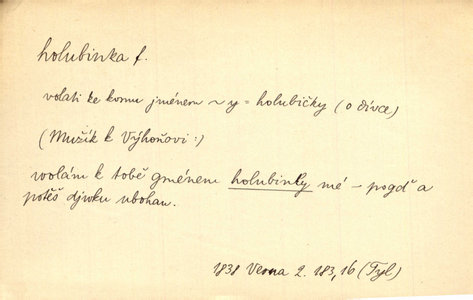 holubinka f.
volati ke komu jménem ~ y = holubičky (o dívce)
(Mužík k Výhoňovi:)
wolám k tobě gménem holubinky mé – pogď a
potěš djwku ubohau.
1838 Vesna 2. 183,16 (Tyl)